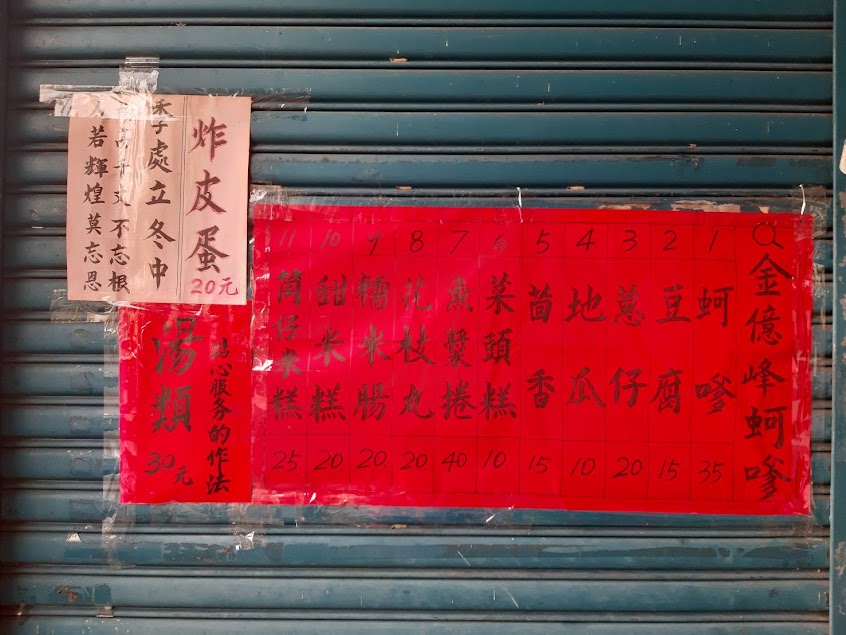 Q金億峰蚵嗲
1 蚵嗲 35
2 豆腐 15
3 蔥仔 20
4 地瓜 10
5 茴香 15
6 菜頭糕 10
7 魚漿捲 40
8 花枝丸 20
9 糯米腸 20
10 甜米糕 20
11 筒仔米糕 25
炸皮蛋 20元
季處立冬中
高千丈不忘根
若輝煌莫忘恩
心服务的作法
湯類 30元